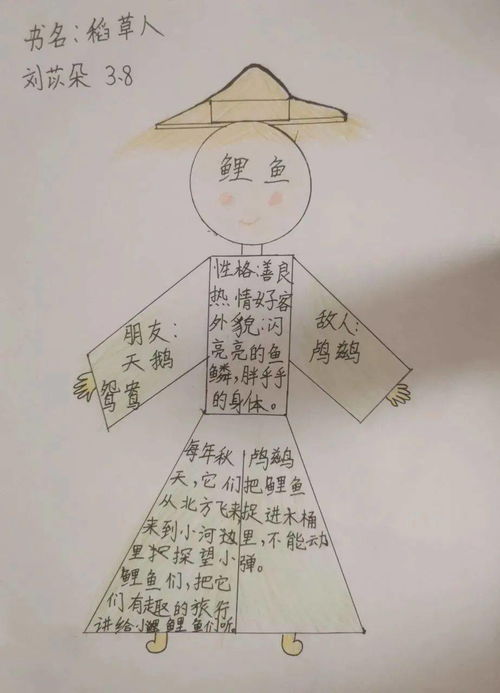 书名:稻草人
刘苡朵 3.8
鲤鱼
性格:善良
热情好客
外貌:闪
亮亮的鱼
鳞,胖乎乎
的身体。
朋友:
天鹅
鸳鸯
敌人:
鸬鹚
每年秋
天,它们
从北方飞来
来到小河这
里探望小
鲤鱼们,把它
们有趣的旅行
讲给小鲤鱼们听。
鸬鹚
把鲤鱼
捉进木桶
里,不能动
弹。